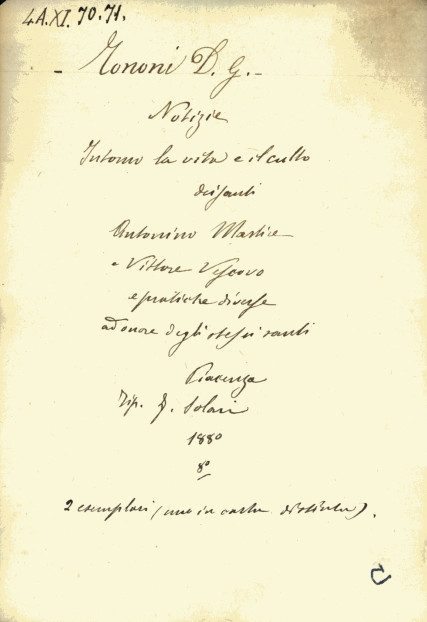 4A.XI.70.71.
- Tononi D. G. -
Notizie
Intorno la vita e il culto
dei santi
Antonino Martire
e Vittore Vescovo
e pratiche diverse
ad onore degli stessi santi
Piacenza
Tip. F. Solari
1880
8º
2 esemplari (uno in carta distinta).